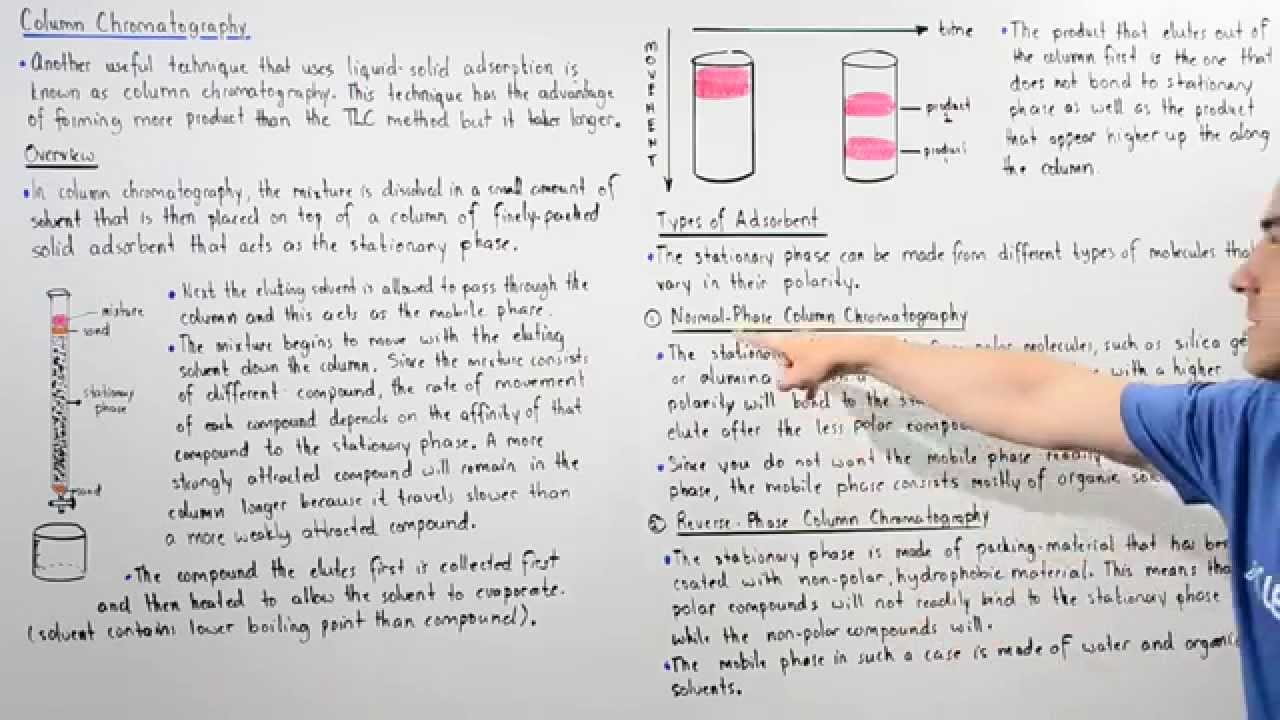 Column Chromatography
• Another useful technique that uses liquid-solid adsorption is
known as column chromatography. This technique has the advantage
of forming more product than the TLC method but it takes longer.
Overview
• In column chromatography, the mixture is dissolved in a small amount of
solvent that is then placed on top of a column of finely-packed
solid adsorbent that acts as the stationary phase.
mixture
sand
stationary
phase
sand
• Next the eluting solvent is allowed to pass through the
column and this acts as the mobile phase.
• The mixture begins to move with the eluting
solvent down the column. Since the mixture consists
of different compound, the rate of movement
of each compound depends on the affinity of that
compound to the stationary phase. A more
strongly attracted compound will remain in the
column longer because it travels slower than
a more weakly attracted compound.
• The compound the elutes first is collected first
and then heated to allow the solvent to evaporate.
(solvent contains lower boiling point than compound).
time
MOVEMENT
product
product
• The product that elutes out of
the column first is the one that
does not bond to stationary
phase as well as the product
that appear higher up the along
the column.
Types of Adsorbent
• The stationary phase can be made from different types of molecules that
vary in their polarity.
① Normal-Phase Column Chromatography
• The stationary polar molecules, such as silica gel
or alumina with a higher
polarity will bond to the
elute after the less polar
• Since you do not want the mobile phase readily
phase, the mobile phase consists mostly of organic
② Reverse-Phase Column Chromatography
• The stationary phase is made of packing-material that has been
coated with non-polar, hydrophobic material. This means that
polar compounds will not readily bind to the stationary phase
while the non-polar compounds will.
• The mobile phase in such a case is made of water and organic
solvents.